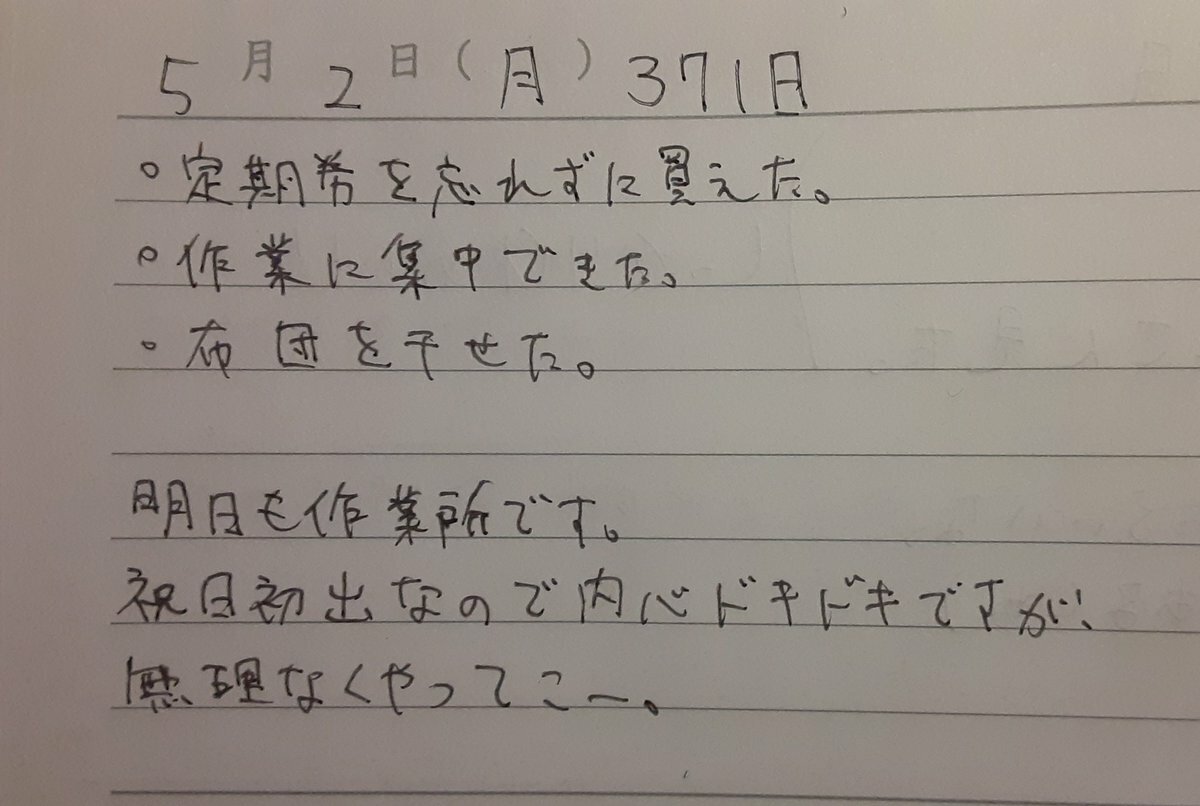 5月2日(月)371日
○定期券を忘れずに買えた。
○作業に集中できた。
○布団を干せた。
明日も作業所です。
祝日初出なので内心ドキドキですが、
無理なくやってこー。